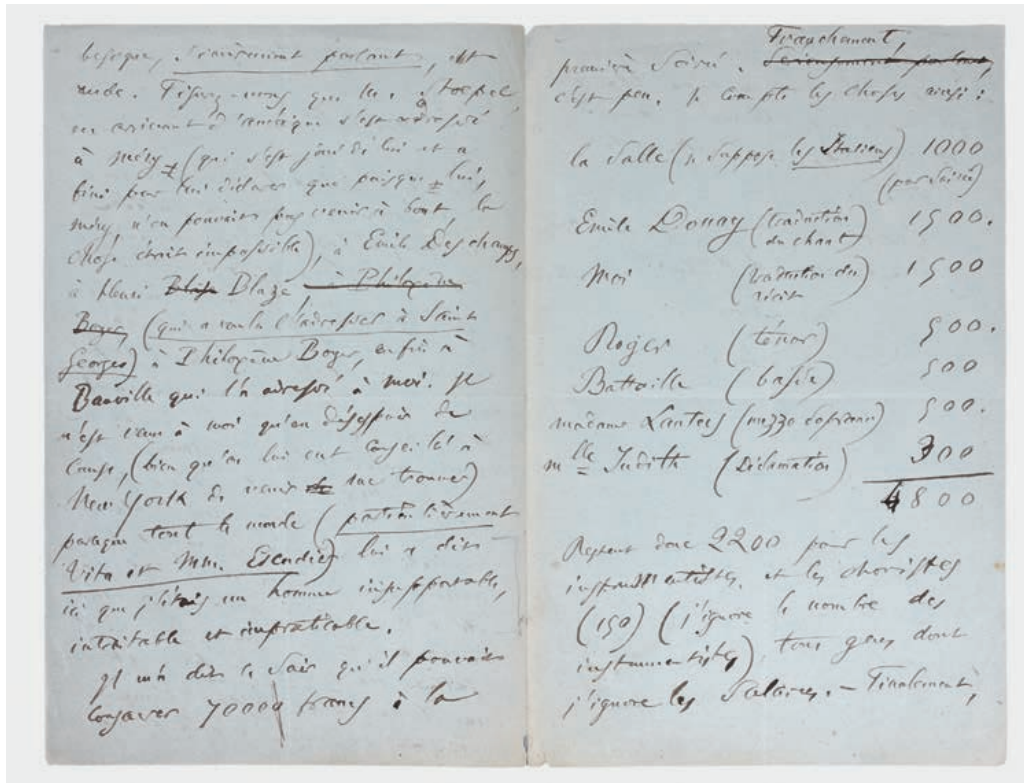 besogne, sincèrement parlant, est
rude. Figurez-vous que M. Stoepel,
en arrivant d'Amérique s'est adressé
à Méry (qui s'est joué de lui et a
fini par lui déclarer que puisque lui,
Méry, n'en pouvait pas venir à bout, la
chose était impossible), à Emile Deschamps,
à Henri Blaze Blaze à Philoxène
Boyer, (qui a voulu l'adresser à Saint
Georges) à Philoxène Boyer, enfin à
Banville qui l'a adressé à moi. Il
n'est venu à moi qu'en désespoir de
cause, (bien qu'on lui eut conseillé à
New York de venir me trouver)
parceque tout le monde (particulièrement
Vitu et MM. Escudier) lui a dit
ici que j'étais un homme insupportable,
intraitable et impraticable.
Il m'a dit le soir qu'il pouvait
consacrer 7000 francs à la
Franchement,
première soirée. Sérieusement parlant,
c'est peu. Je compte les choses ainsi :
la Salle (je suppose les Italiens) 1000
(par soirée)
Emile Douay (traduction 1500.
du chant)
Moi (traduction du 1500
récit
Roger (ténor) 500.
Battaille (basse) 500
madame Lauters (mezzo soprano) 500.
Mlle Judith (Déclamation) 300
4800
Restent donc 2200 pour les
instrumentistes et les choristes
(150) (j'ignore le nombre des
instrumentistes), tous gens dont
j'ignore les salaires. – Finalement,